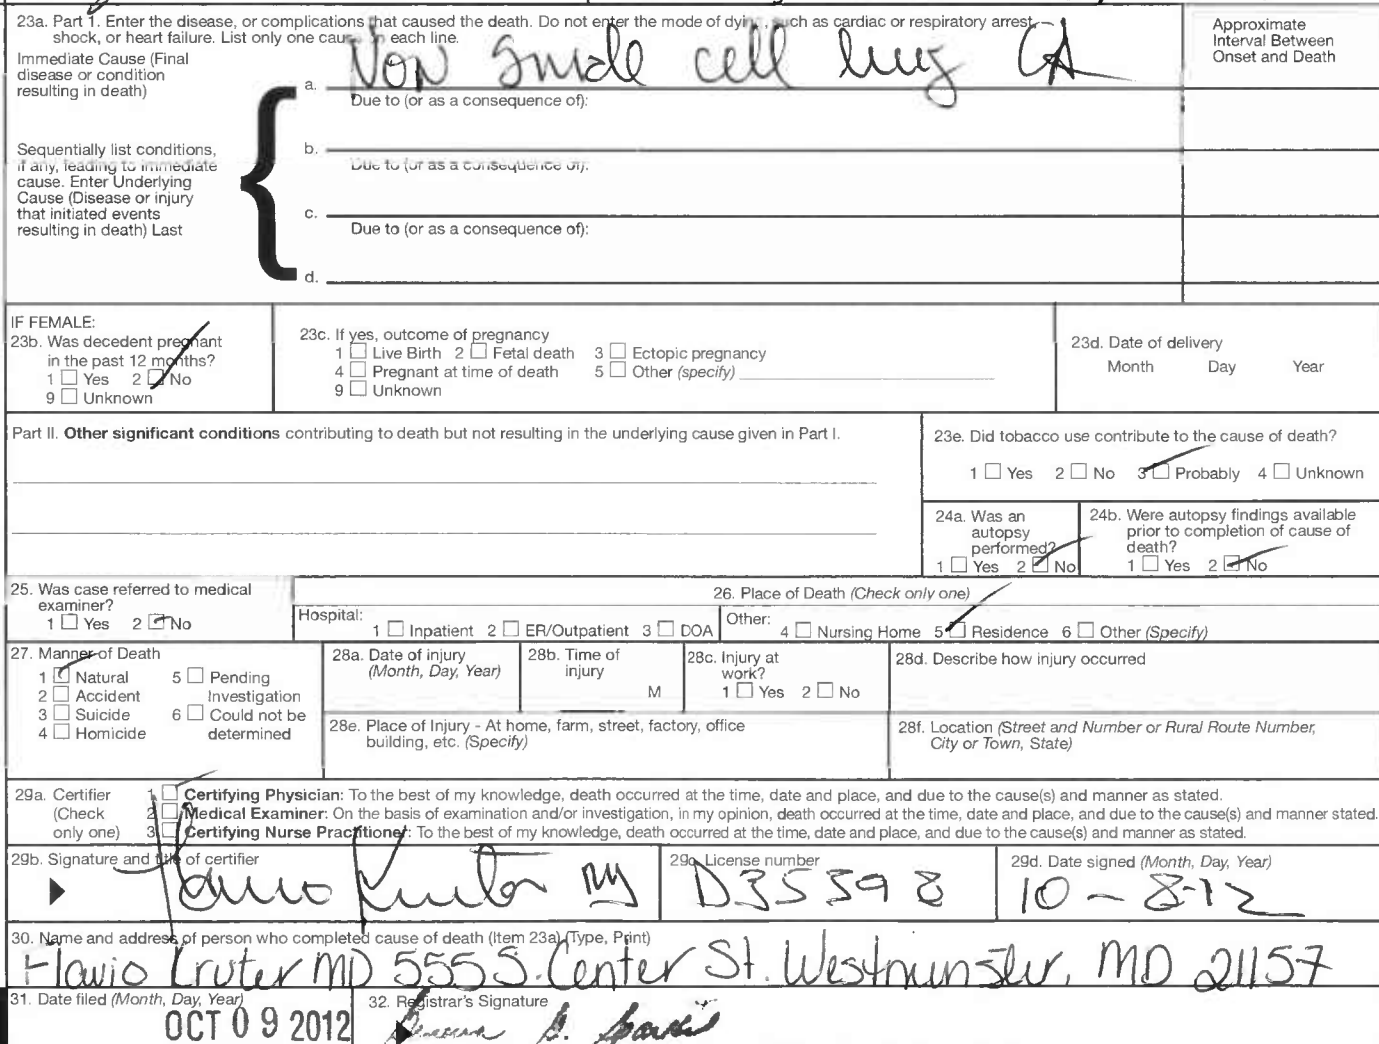 23a. Part 1. Enter the disease, or complications that caused the death. Do not enter the mode of dying, such as cardiac or respiratory arrest,
shock, or heart failure. List only one cause on each line.
Approximate
Interval Between
Onset and Death
Immediate Cause (Final
disease or condition
resulting in death)
a. Non Small cell lung CA
Due to (or as a consequence of):
Sequentially list conditions,
if any, leading to immediate
cause. Enter Underlying
Cause (Disease or injury
that initiated events
resulting in death) Last
b.
Due to (or as a consequence of):
c.
Due to (or as a consequence of):
d.
IF FEMALE:
23b. Was decedent pregnant
in the past 12 months?
1 ☐ Yes 2 ☑ No
9 ☐ Unknown
23c. If yes, outcome of pregnancy
1 ☐ Live Birth 2 ☐ Fetal death 3 ☐ Ectopic pregnancy
4 ☐ Pregnant at time of death 5 ☐ Other (specify)
9 ☐ Unknown
23d. Date of delivery
Month Day Year
Part II. Other significant conditions contributing to death but not resulting in the underlying cause given in Part I.
23e. Did tobacco use contribute to the cause of death?
1 ☐ Yes 2 ☐ No 3 ☑ Probably 4 ☐ Unknown
24a. Was an
autopsy
performed?
1 ☐ Yes 2 ☑ No
24b. Were autopsy findings available
prior to completion of cause of
death?
1 ☐ Yes 2 ☑ No
25. Was case referred to medical
examiner?
1 ☐ Yes 2 ☑ No
26. Place of Death (Check only one)
Hospital: 1 ☐ Inpatient 2 ☐ ER/Outpatient 3 ☐ DOA
Other: 4 ☐ Nursing Home 5 ☑ Residence 6 ☐ Other (Specify)
27. Manner of Death
1 ☑ Natural 5 ☐ Pending
2 ☐ Accident Investigation
3 ☐ Suicide 6 ☐ Could not be
4 ☐ Homicide determined
28a. Date of injury
(Month, Day, Year)
28b. Time of
injury
M
28c. Injury at
work?
1 ☐ Yes 2 ☐ No
28d. Describe how injury occurred
28e. Place of Injury - At home, farm, street, factory, office
building, etc. (Specify)
28f. Location (Street and Number or Rural Route Number,
City or Town, State)
29a. Certifier
(Check
only one)
1 ☑ Certifying Physician: To the best of my knowledge, death occurred at the time, date and place, and due to the cause(s) and manner as stated.
2 ☐ Medical Examiner: On the basis of examination and/or investigation, in my opinion, death occurred at the time, date and place, and due to the cause(s) and manner stated.
3 ☐ Certifying Nurse Practitioner: To the best of my knowledge, death occurred at the time, date and place, and due to the cause(s) and manner as stated.
29b. Signature and title of certifier
Flavio Kruter MD
29c. License number
D35398
29d. Date signed (Month, Day, Year)
10-8-12
30. Name and address of person who completed cause of death (Item 23a) (Type, Print)
Flavio Kruter MD 555 S. Center St. Westminster, MD 21157
31. Date filed (Month, Day, Year)
OCT 09 2012
32. Registrar's Signature